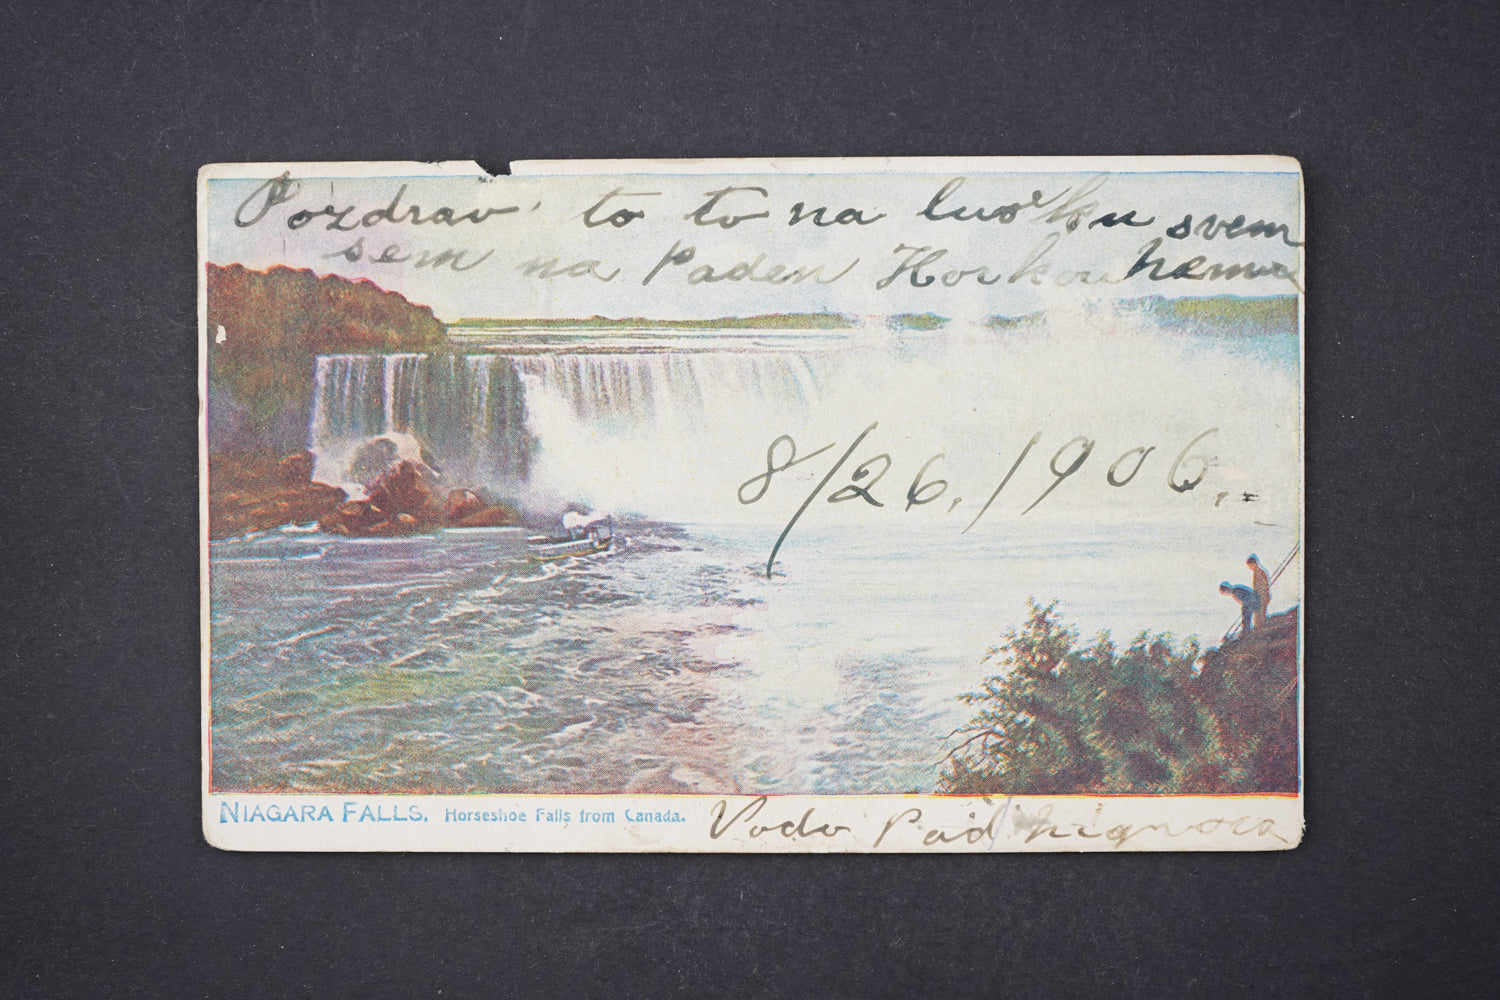 Pozdrav to to na luoʼku svem
sem na Paden Horkou hemu
8/26. 1906.
NIAGARA FALLS. Horseshoe Falls from Canada. Vodo Pad